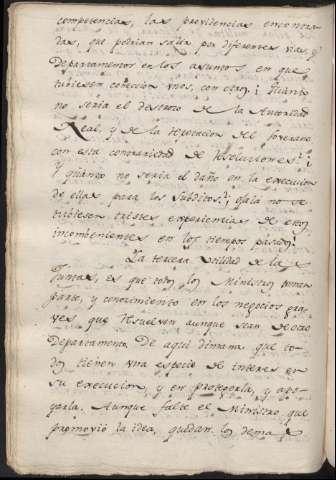 competencias, las providencias encontra
das, que podrian salir por diferentes vias, y
Departamentos en los asuntos, en que
tubiesen conección unos, con otros; ¡ quanto
no seria el desdoro de la Autoridad
Real, y de la reputacion del soverano
con esta contrariedad de resoluciones!
Y quánto no seria el daño en la execucion
de ellas para los subditos! ojala no se
hubiesen tristes experiencias de estos
incombenientes en los tiempos pasados!
La tercera utilidad de la
Juntas, es que todos los Ministros tomen
parte, y conocimiento en los negocios gra
ves, que resuelven aunque sean de otro
departamento. De aqui dimana que to
dos tienen una especie de interes en
su execucion, y en protegerla, y apo
yarla. Aunque falte el Ministro, que
promovió la idea, quedan los demas